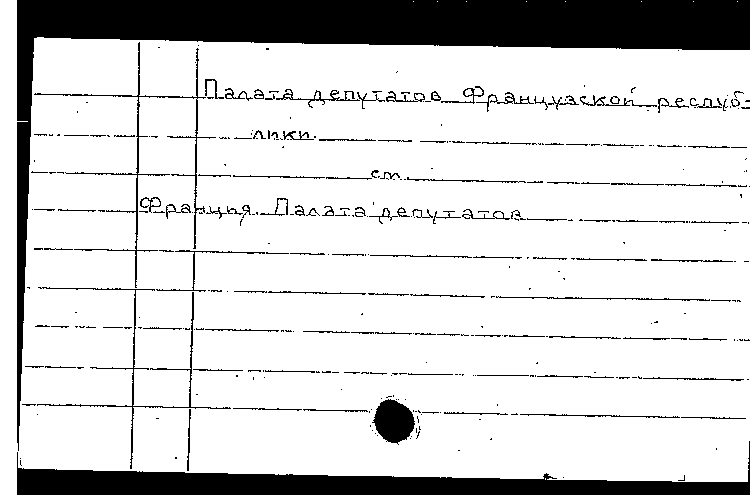 Палата депутатов Французской респуб-
лики.
см.
Франция. Палата депутатов